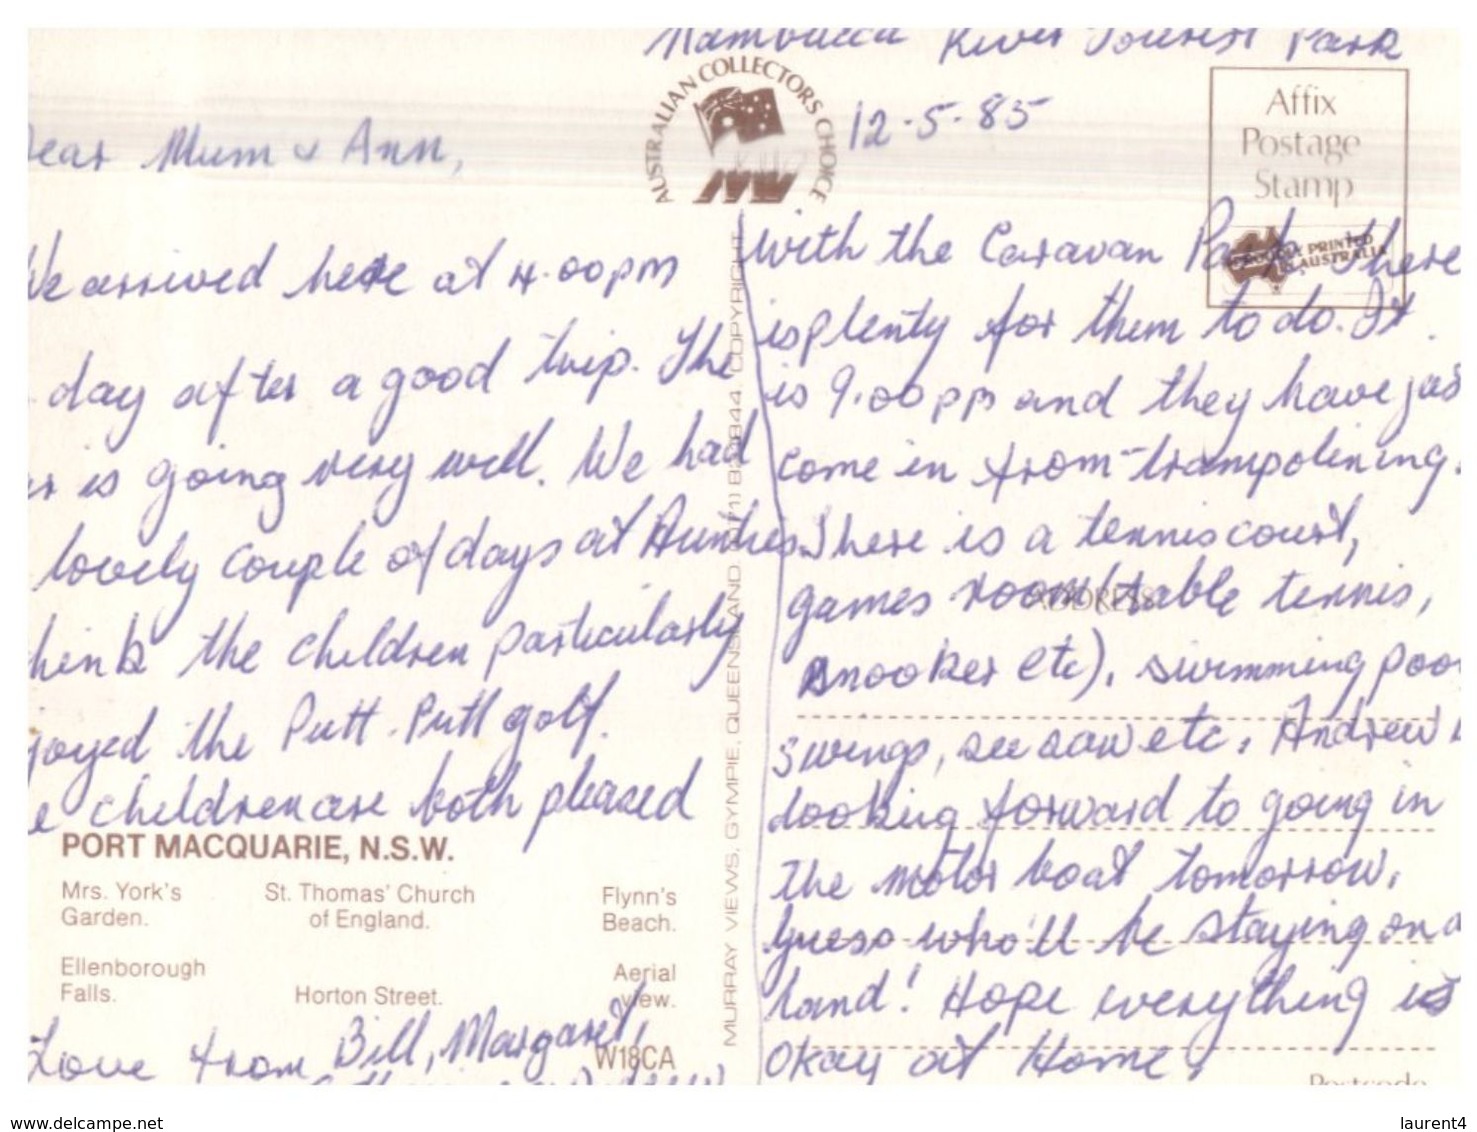 Nambucca River Tourist Park
12-5-85
AUSTRALIAN COLLECTORS CHOICE
Affix
Postage
Stamp
PRINTED
IN AUSTRALIA
ear Mum & Ann,
We arrived here at 4.00pm
day after a good trip. The
er is going very well. We had
lovely couple of days at Aunties.
hink the children particularly
joyed the Putt-Putt golf.
e children are both pleased
PORT MACQUARIE, N.S.W.
Mrs. York's Garden.
St. Thomas' Church of England.
Flynn's Beach.
Ellenborough Falls.
Horton Street.
Aerial View.
Love from Bill, Margaret,
W18CA
MURRAY VIEWS, GYMPIE, QUEENSLAND. (071) 823844. COPYRIGHT
with the Caravan Park. There
is plenty for them to do. It
is 9.00pm and they have jus
come in from trampolining.
There is a tennis court,
games room (table tennis,
ADDRESS
snooker etc), swimming poo
swings, see saw etc. Andrew
looking forward to going in
the motor boat tomorrow,
Guess who'll be staying on
land! Hope everything is
Okay at Home.
Postcode
www.delcampe.net
laurent4